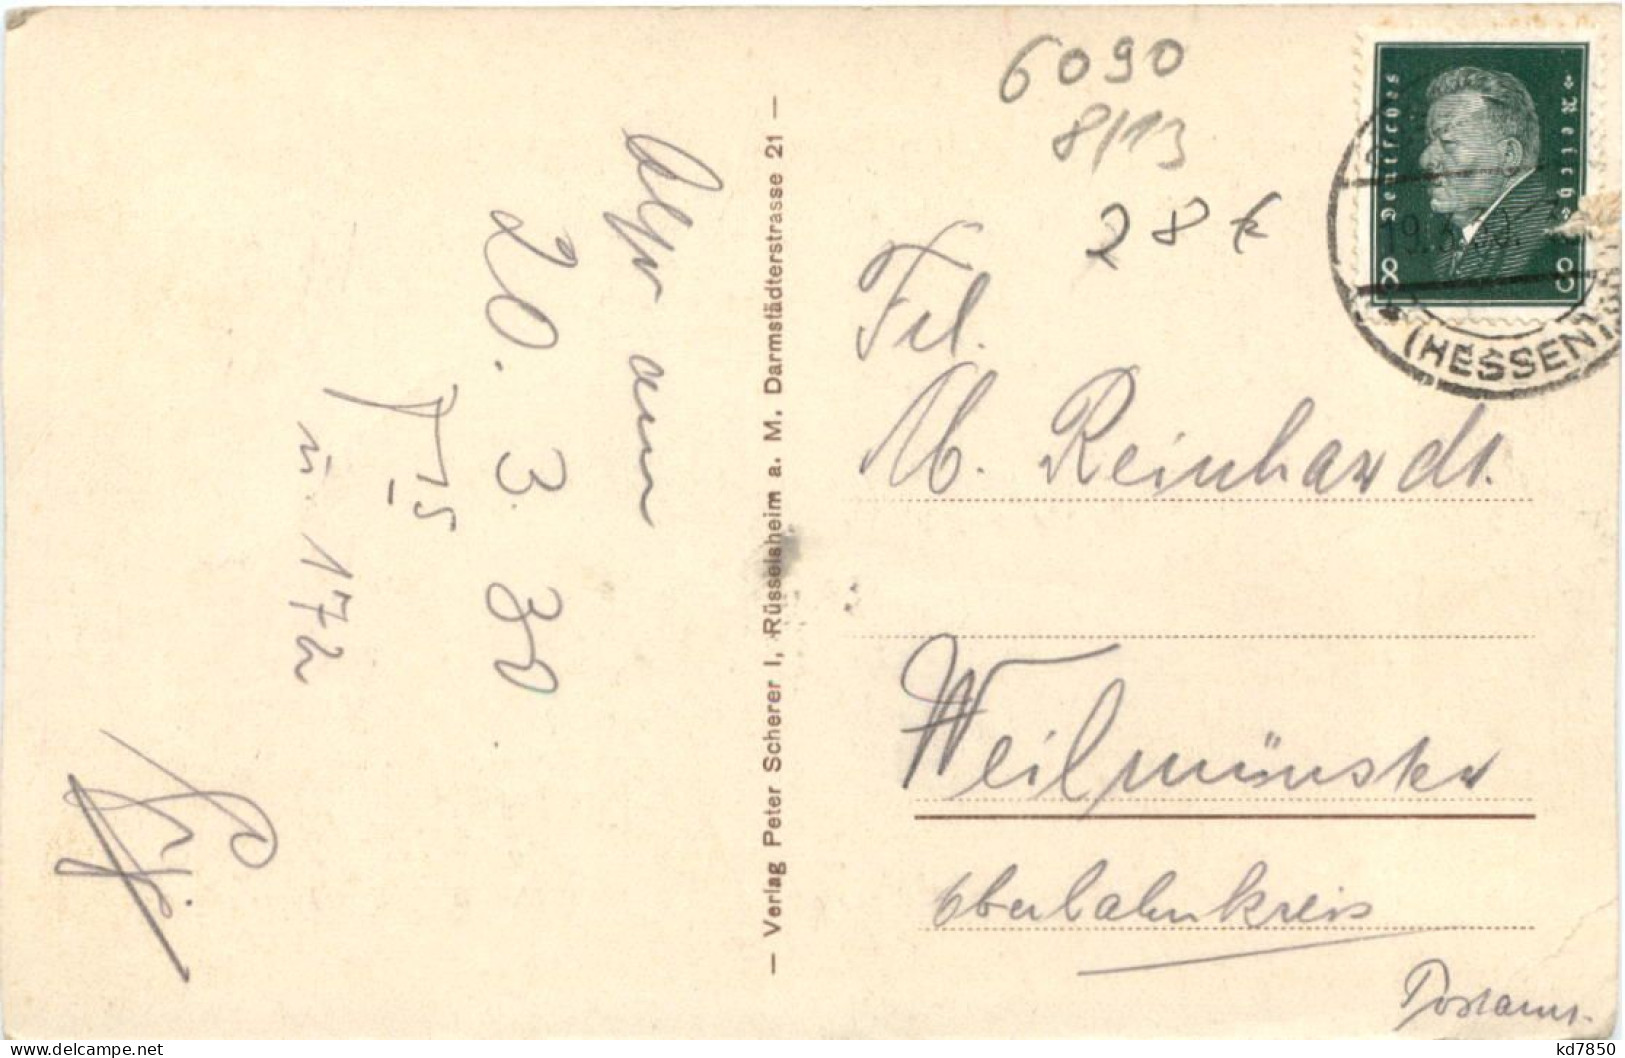 6090
8/13
28 €
Deutsches Reich
8 8
19.3.30.
(HESSEN)
Frl.
M. Reinhardt.
Weilmünster
Oberlahnkreis
Postamt.
— Verlag Peter Scherer I, Rüsselsheim a. M. Darmstädterstrasse 21 —
Also am
20. 3. 30.
15
u. 172
kd7850